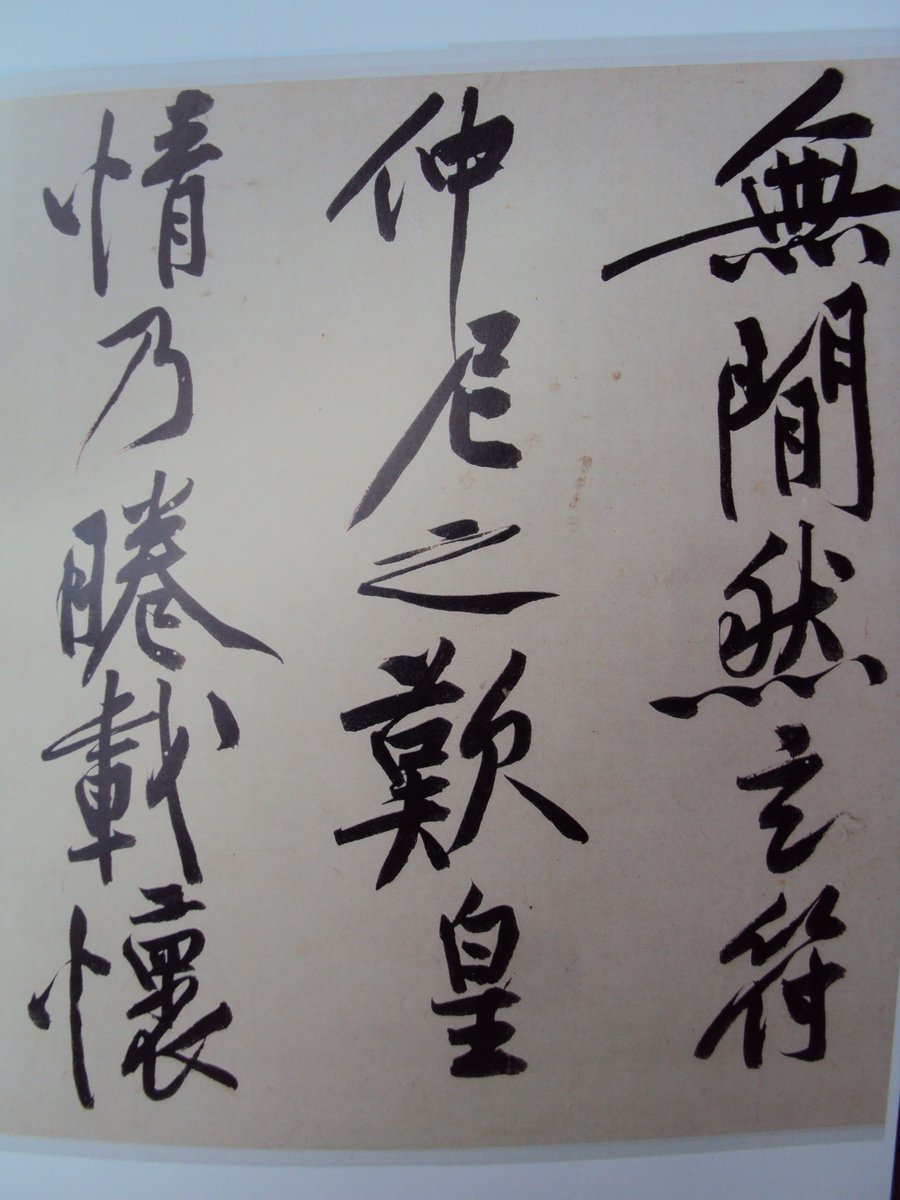 無閒然玄符
仲尼之歎皇
情乃睠載懷